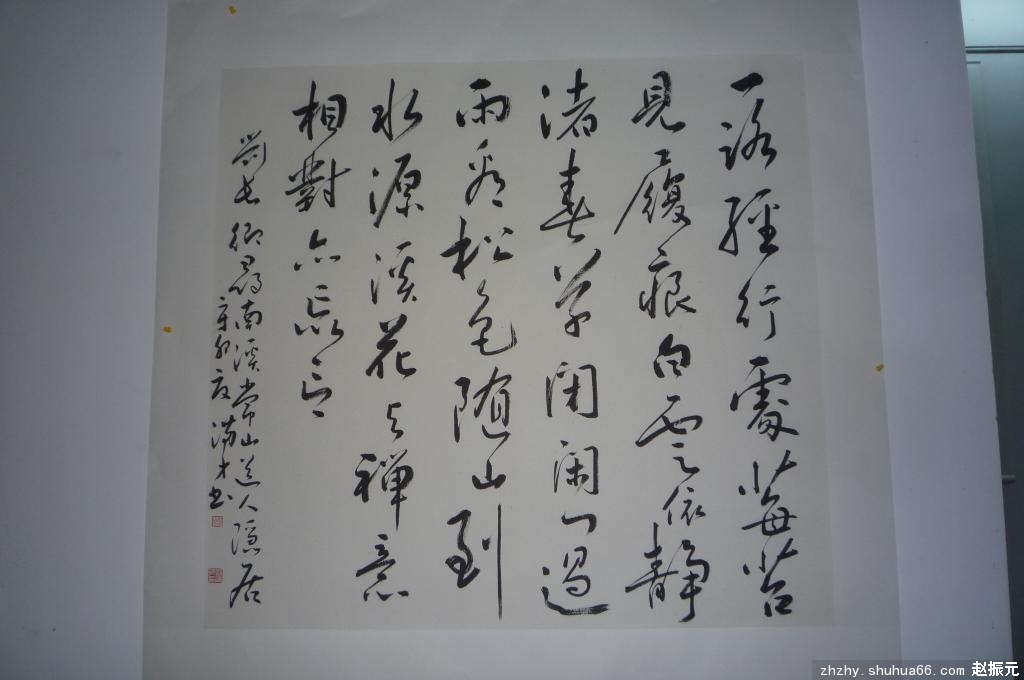 一路經行處莓苔
見履痕白云依靜
渚春草闭闲门過
雨看松色随山到
水源溪花与禅意
相對亦忘言
劉长卿尋南溪常山道人隱居
辛卯夏满才书
zhzhy.shuhua66.com 赵振元